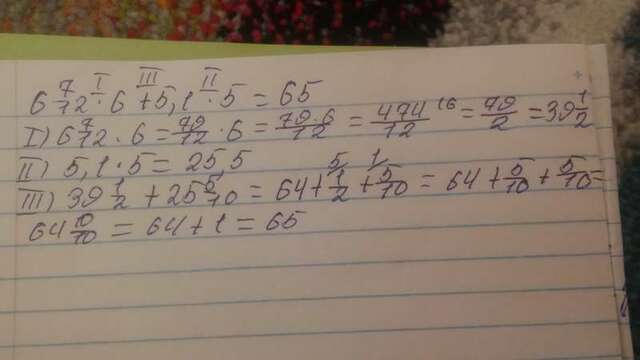 6 7/12 · 6 + 5,1 · 5 = 65
I) 6 7/12 · 6 = 79/12 · 6 = 79·6/12 = 474/12 |6 = 79/2 = 39 1/2
II) 5,1 · 5 = 25 5
III) 39 1/2 + 25 5/10 = 64 + 1/2 + 5/10 = 64 + 5/10 + 5/10 =
64 10/10 = 64 + 1 = 65